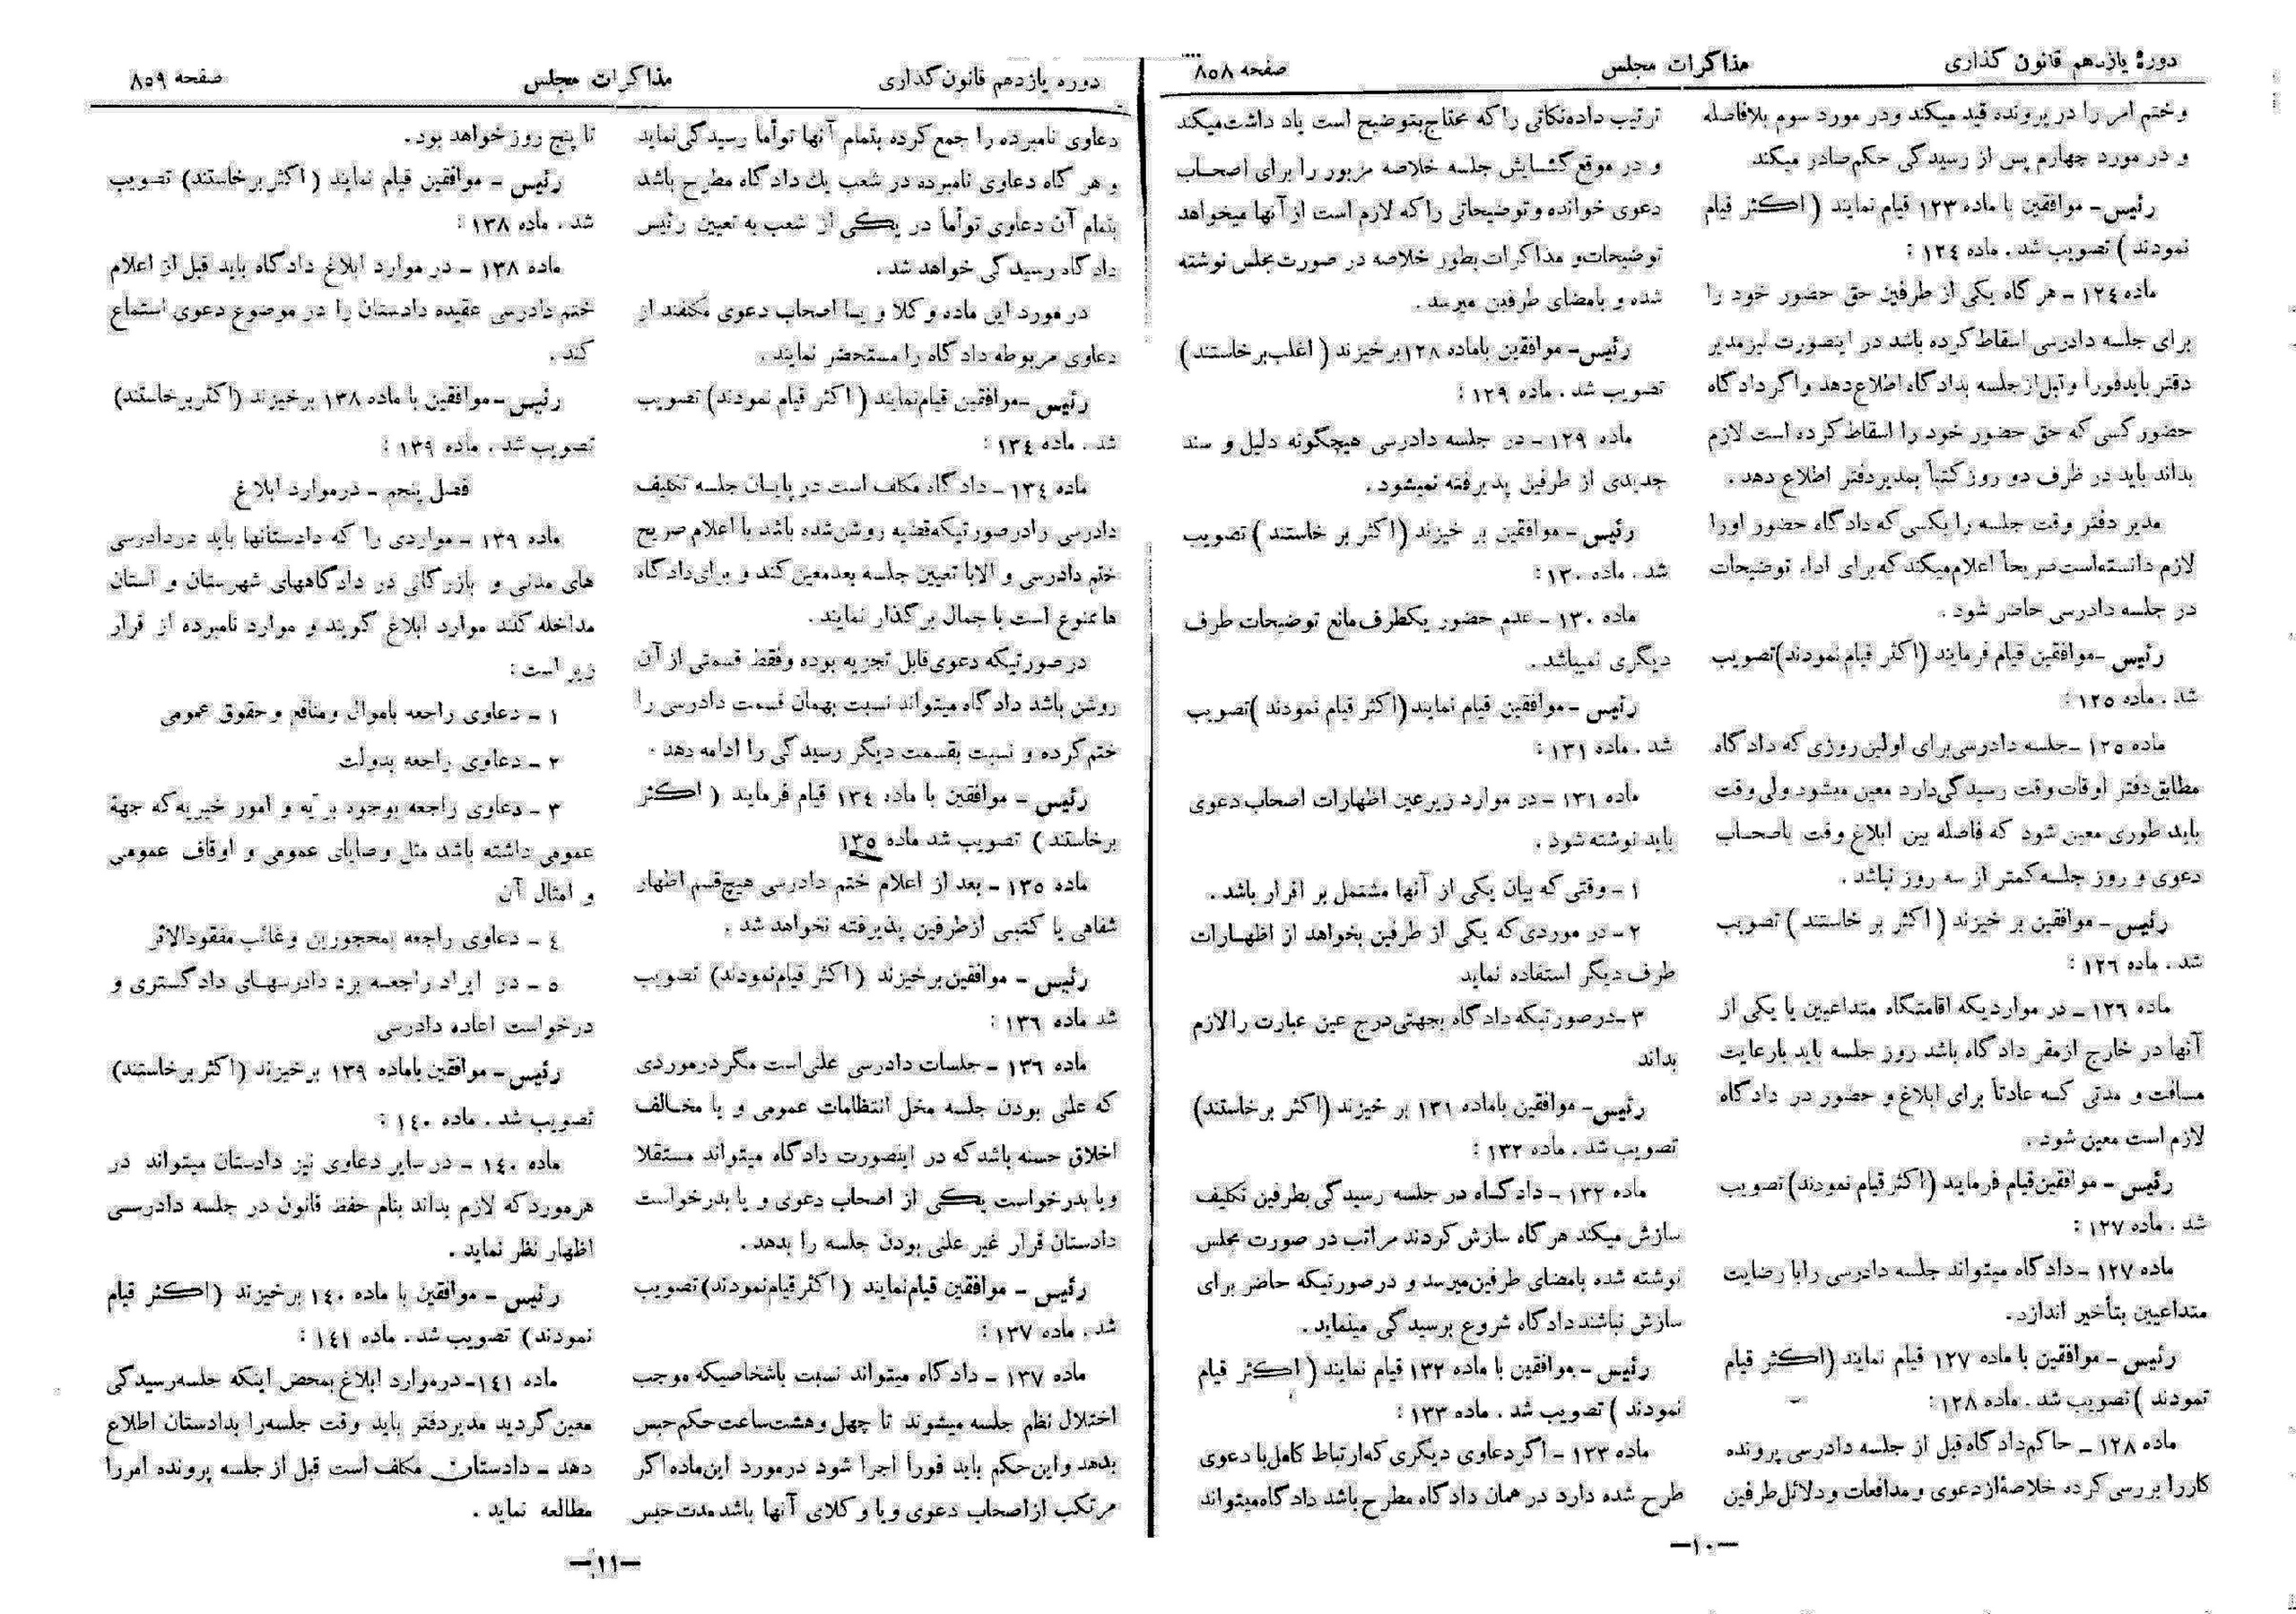 دورهٔ یازدهم قانون گذاری
مذاکرات مجلس
صفحه ۸۵۸
و ختم امر را در پرونده قید میکند ودر مورد سوم بلافاصله
و در مورد چهارم پس از رسیدگی حکم صادر میکند
رئیس - موافقین با ماده ۱۲۳ قیام نمایند ( اکثر قیام
نمودند ) تصویب شد . ماده ۱۲٤ :
ماده ۱۲٤ - هر گاه یکی از طرفین حق حضور خود را
برای جلسه دادرسی اسقاط کرده باشد در اینصورت نیز مدیر
دفتر باید فوراً و قبل از جلسه بدادگاه اطلاع دهد و اگر دادگاه
حضور کسی که حق حضور خود را اسقاط کرده است لازم
بداند باید در ظرف دو روز کتباً بمدیر دفتر اطلاع دهد .
مدیر دفتر وقت جلسه را بکسی که دادگاه حضور اورا
لازم دانسته‌است صریحاً اعلام میکند که برای اداء توضیحات
در جلسه دادرسی حاضر شود .
رئیس - موافقین قیام فرمایند (اکثر قیام نمودند) تصویب
شد . ماده ۱۲٥ :
ماده ۱۲٥ - جلسه دادرسی برای اولین روزی که دادگاه
مطابق دفتر اوقات وقت رسیدگی دارد معین میشود ولی وقت
باید طوری معین شود که فاصله بین ابلاغ وقت باصحاب
دعوی و روز جلسه کمتر از سه روز نباشد .
رئیس - موافقین بر خیزند ( اکثر بر خاستند ) تصویب
شد . ماده ۱۲٦ :
ماده ۱۲٦ - در مواردیکه اقامتگاه متداعیین یا یکی از
آنها در خارج از مقر دادگاه باشد روز جلسه باید بارعایت
مسافت و مدتی که عادتاً برای ابلاغ و حضور در دادگاه
لازم است معین شود .
رئیس - موافقین قیام فرمایند (اکثر قیام نمودند) تصویب
شد . ماده ۱۲۷ :
ماده ۱۲۷ - دادگاه میتواند جلسه دادرسی را با رضایت
متداعیین بتأخیر اندازد.
رئیس - موافقین با ماده ۱۲۷ قیام نمایند (اکثر قیام
نمودند ) تصویب شد . ماده ۱۲۸ :
ماده ۱۲۸ - حاکم دادگاه قبل از جلسه دادرسی پرونده
کار را بررسی کرده خلاصهٔ از دعوی و مدافعات و دلائل طرفین
ترتیب داده نکاتی را که محتاج بتوضیح است یاد داشت میکند
و در موقع گشایش جلسه خلاصه مزبور را برای اصحاب
دعوی خوانده و توضیحاتی را که لازم است از آنها میخواهد
توضیحات و مذاکرات بطور خلاصه در صورت مجلس نوشته
شده و بامضای طرفین میرسد .
رئیس - موافقین باماده ۱۲۸ برخیزند ( اغلب برخاستند )
تصویب شد . ماده ۱۲۹ :
ماده ۱۲۹ - در جلسه دادرسی هیچگونه دلیل و سند
جدیدی از طرفین پذیرفته نمیشود .
رئیس - موافقین بر خیزند (اکثر بر خاستند ) تصویب
شد . ماده ۱۳۰ :
ماده ۱۳۰ - عدم حضور یکطرف مانع توضیحات طرف
دیگری نمیباشد .
رئیس - موافقین قیام نمایند (اکثر قیام نمودند ) تصویب
شد . ماده ۱۳۱ :
ماده ۱۳۱ - در موارد زیر عین اظهارات اصحاب دعوی
باید نوشته شود .
۱ - وقتی که بیان یکی از آنها مشتمل بر اقرار باشد .
۲ - در موردی که یکی از طرفین بخواهد از اظهارات
طرف دیگر استفاده نماید
۳ - درصورتیکه دادگاه بجهتی درج عین عبارت را لازم
بداند
رئیس - موافقین باماده ۱۳۱ بر خیزند (اکثر بر خاستند)
تصویب شد . ماده ۱۳۲ :
ماده ۱۳۲ - دادگاه در جلسه رسیدگی بطرفین تکلیف
سازش میکند هر گاه سازش کردند مراتب در صورت مجلس
نوشته شده بامضای طرفین میرسد و در صورتیکه حاضر برای
سازش نباشند دادگاه شروع برسیدگی مینماید .
رئیس - موافقین با ماده ۱۳۲ قیام نمایند ( اکثر قیام
نمودند ) تصویب شد . ماده ۱۳۳ :
ماده ۱۳۳ - اگر دعاوی دیگری که ارتباط کامل با دعوی
طرح شده دارد در همان دادگاه مطرح باشد دادگاه میتواند
-۱۰-
دوره یازدهم قانون گذاری
مذاکرات مجلس
صفحه ۸۵۹
دعاوی نامبرده را جمع کرده بتمام آنها توأماً رسیدگی نماید
و هر گاه دعاوی نامبرده در شعب یك دادگاه مطرح باشد
بتمام آن دعاوی توأماً در یکی از شعب به تعیین رئیس
دادگاه رسیدگی خواهد شد .
در مورد این ماده وکلا و یا اصحاب دعوی مکلفند از
دعاوی مربوطه دادگاه را مستحضر نمایند .
رئیس - موافقین قیام نمایند ( اکثر قیام نمودند) تصویب
شد . ماده ۱۳٤ :
ماده ۱۳٤ - دادگاه مکلف است در پایان جلسه تکلیف
دادرسی را در صورتیکه قضیه روشن شده باشد با اعلام صریح
ختم دادرسی و الا با تعیین جلسه بعد معین کند و برای دادگاه
ها ممنوع است باجمال برگذار نمایند .
در صورتیکه دعوی قابل تجزیه بوده و فقط قسمتی از آن
روشن باشد دادگاه میتواند نسبت بهمان قسمت دادرسی را
ختم کرده و نسبت بقسمت دیگر رسیدگی را ادامه دهد .
رئیس - موافقین با ماده ۱۳٤ قیام فرمایند ( اکثر
برخاستند ) تصویب شد ماده ۱۳٥
ماده ۱۳٥ - بعد از اعلام ختم دادرسی هیچ قسم اظهار
شفاهی یا کتبی از طرفین پذیرفته نخواهد شد .
رئیس - موافقین برخیزند (اکثر قیام نمودند) تصویب
شد ماده ۱۳٦ :
ماده ۱۳٦ - جلسات دادرسی علنی است مگر در موردی
که علنی بودن جلسه مخل انتظامات عمومی و یا مخالف
اخلاق حسنه باشد که در اینصورت دادگاه میتواند مستقلا
ویا بدرخواست یکی از اصحاب دعوی و یا بدرخواست
دادستان قرار غیر علنی بودن جلسه را بدهد .
رئیس - موافقین قیام نمایند ( اکثر قیام نمودند) تصویب
شد . ماده ۱۳۷ :
ماده ۱۳۷ - دادگاه میتواند نسبت باشخاصیکه موجب
اختلال نظم جلسه میشوند تا چهل و هشت ساعت حکم حبس
بدهد و این حکم باید فوراً اجرا شود در مورد این ماده اگر
مرتکب از اصحاب دعوی و یا وکلای آنها باشد مدت حبس
تا پنج روز خواهد بود.
رئیس - موافقین قیام نمایند ( اکثر برخاستند) تصویب
شد . ماده ۱۳۸ :
ماده ۱۳۸ - در موارد ابلاغ دادگاه باید قبل از اعلام
ختم دادرسی عقیده دادستان را در موضوع دعوی استماع
کند .
رئیس - موافقین با ماده ۱۳۸ برخیزند (اکثر برخاستند)
تصویب شد . ماده ۱۳۹ :
فصل پنجم - درموارد ابلاغ
ماده ۱۳۹ - مواردی را که دادستانها باید در دادرسی
های مدنی و بازرگانی در دادگاههای شهرستان و استان
مداخله کنند موارد ابلاغ گویند و موارد نامبرده از قرار
زیر است :
۱ - دعاوی راجعه باموال ومنافع و حقوق عمومی
۲ - دعاوی راجعه بدولت
۳ - دعاوی راجعه بوجود بریه و امور خیریه که جهة
عمومی داشته باشد مثل وصایای عمومی و اوقاف عمومی
و امثال آن
٤ - دعاوی راجعه بمحجورین و غائب مفقودالاثر
٥ - در ایراد راجعه برد دادرسهای دادگستری و
درخواست اعاده دادرسی
رئیس - موافقین باماده ۱۳۹ برخیزند (اکثر برخاستند)
تصویب شد . ماده ۱٤۰ :
ماده ۱٤۰ - در سایر دعاوی نیز دادستان میتواند در
هر مورد که لازم بداند بنام حفظ قانون در جلسه دادرسی
اظهار نظر نماید .
رئیس - موافقین با ماده ۱٤۰ برخیزند (اکثر قیام
نمودند) تصویب شد . ماده ۱٤۱ :
ماده ۱٤۱- در موارد ابلاغ بمحض اینکه جلسه رسیدگی
معین گردید مدیر دفتر باید وقت جلسه را بدادستان اطلاع
دهد - دادستان مکلف است قبل از جلسه پرونده امر را
مطالعه نماید .
-۱۱-